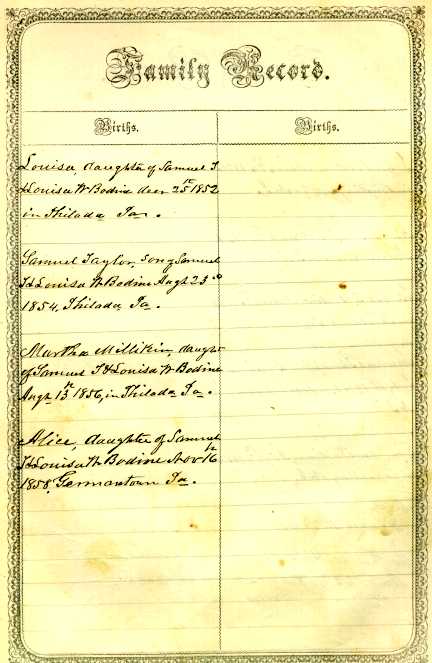 Family Record.
Births.
Births.
Louisa, daughter of Samuel T
& Louisa W Bodine decr 25th 1852
in Philada Pa.
Samuel Taylor, son of Samuel
T & Louisa W Bodine Augt 23rd
1854, Philada, Pa.
Martha Millikin, daught
of Samuel T & Louisa W Bodine
Augt 13th 1856, in Philada Pa.
Alice, daughter of Samuel
T & Louisa W Bodine Nov 16th
1858, Germantown Pa.